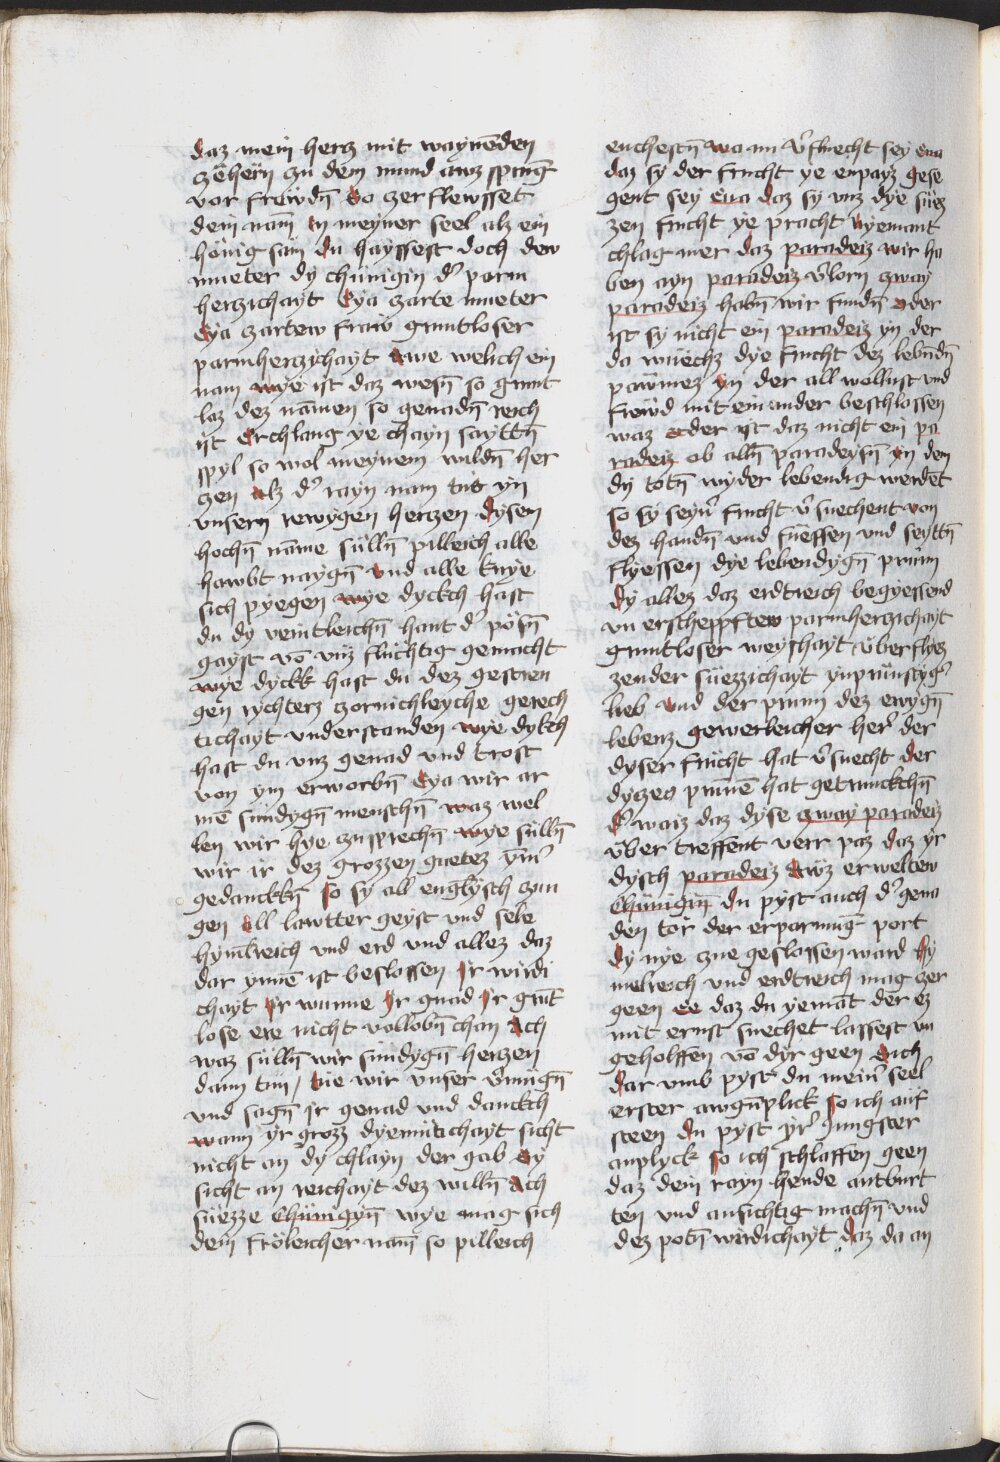 daz mein hercz mit waynēden
zëhern zu dem mund awz sprinḡ
vor frewdn̄ So zer flewsset
dein nam̄ in meyner seel alz ein
hönig sam̄ du hayssest doch dew
mueter dy chünigin dʾ parm
herczichayt Eya zarte mueter
Eya zartew fraw gruntloser
parmherczichayt Awe welich ein
nam wye ist daz wesn̄ so grunt
laz dez namen so genadn̄ reich
ist Erchlang ye chayn sayttn̄
spyl so wol meynem wildn̄ her
czen Alz dʾ rayn nam tüt yn
vnsern rewygen herczen dysen
hochn̄ name sülln̄ pilleich alle
hawbt naygn̄ vnd alle knye
sich pyegen wye dyckch hast
du dy veintleichn̄ hant dʾ pösn̄
gayst vō vnz fluchtig gemacht
wye dyckk hast du dez gestren
gen rychterz zornichleyche gerech
tichayt vnderstanden wye dykch
hast du vnz genad vnd trost
von ym erworbn̄ Eya wir ar
mē sündygn̄ menschn̄ waz wel
len wir hye czu sprechn̄ wye sülln̄
wir ir dez grozzen guetez ym̄ʾ
gedanckkn̄ so sy all englysch zun
gen All lawtter geyst vnd sele
hym̄lreich vnd erd vnd allez daz
dar ynnē ist beslossen Ir wirdi
chayt Ir wunne Ir gnad Ir grūt
lose ere nicht vollobn̄ chan Ach
waz sülln̄ wir sündygn̄ herczen
dann tun / Tie wir vnser v̄mügn̄
vnd sagn̄ ir genad vnd danckch
wann yr grozz dyemütichayt sicht
nicht an dy chlayn der gab Sy
sicht an reichayt dez willn̄ Ach
süezze Chünigyn̄ wye mag sich
dein fröleicher nam̄ so pilleich
euchestn̄ wa ein v̄fluecht sey Eua
daz sy der frucht ye enpayz gese
gent sey Eua daz sy vnz dye süez
zen frucht ye pracht Nyemant
chlag mer daz paradeiz wir ha
ben ayn paradeiz v̄lorn zway
paradeiz habn̄ wir fundn̄ oder
ist sy nicht ein paradeiz yn der
da wuechz dye frucht dez lebndn̄
pawmez yn der all wollust vnd
frewd mit einander beschlossen
waz oder ist daz nicht ein pa
radeiz ob alln̄ paradeysn̄ yn dem
dy totn̄ wyder lebendig werdēt
so sy seynʾ frucht v̄suechent von
dez handn̄ vnd füessen vnd seyttn̄
flyessen dye lebendygn̄ prunn̄
dy allez daz erdtreich begyessend
vn erscheppftew parmherczichayt
gruntloser weyshayt vber flyez
zender süezzichayt ynprünstygʾ
lieb vnd der prunn dez ewygn̄
lebenz gewerleicher herʾ der
dyser frücht hat v̄suecht der
dyczes prunnē hat getrunckchn̄
dʾ waiz daz dyse zway paradeiz
vber treffent verr paz daz yr
dysch paradeiz Awz erweltew
Chünigin du pyst auch dʾ gena
den tör der erparmūg port
dy nye zue geslossen ward Hy
melreich vnd erdtreich mag zer
geen ee daz du yemāt der ez
mit ernst suechet lassest vn
geholffen vō dyr geen Auch
dar vmb pyst du meinʾ seel
erster awgn̄plick so ich auf
steen du pyst yrʾ jungster
anplyck so ich schlaffen geen
daz dein rayn hende antburt
ten vnd ansichtig machn̄ vnd
dez potn̄ wirdichayt daz da an